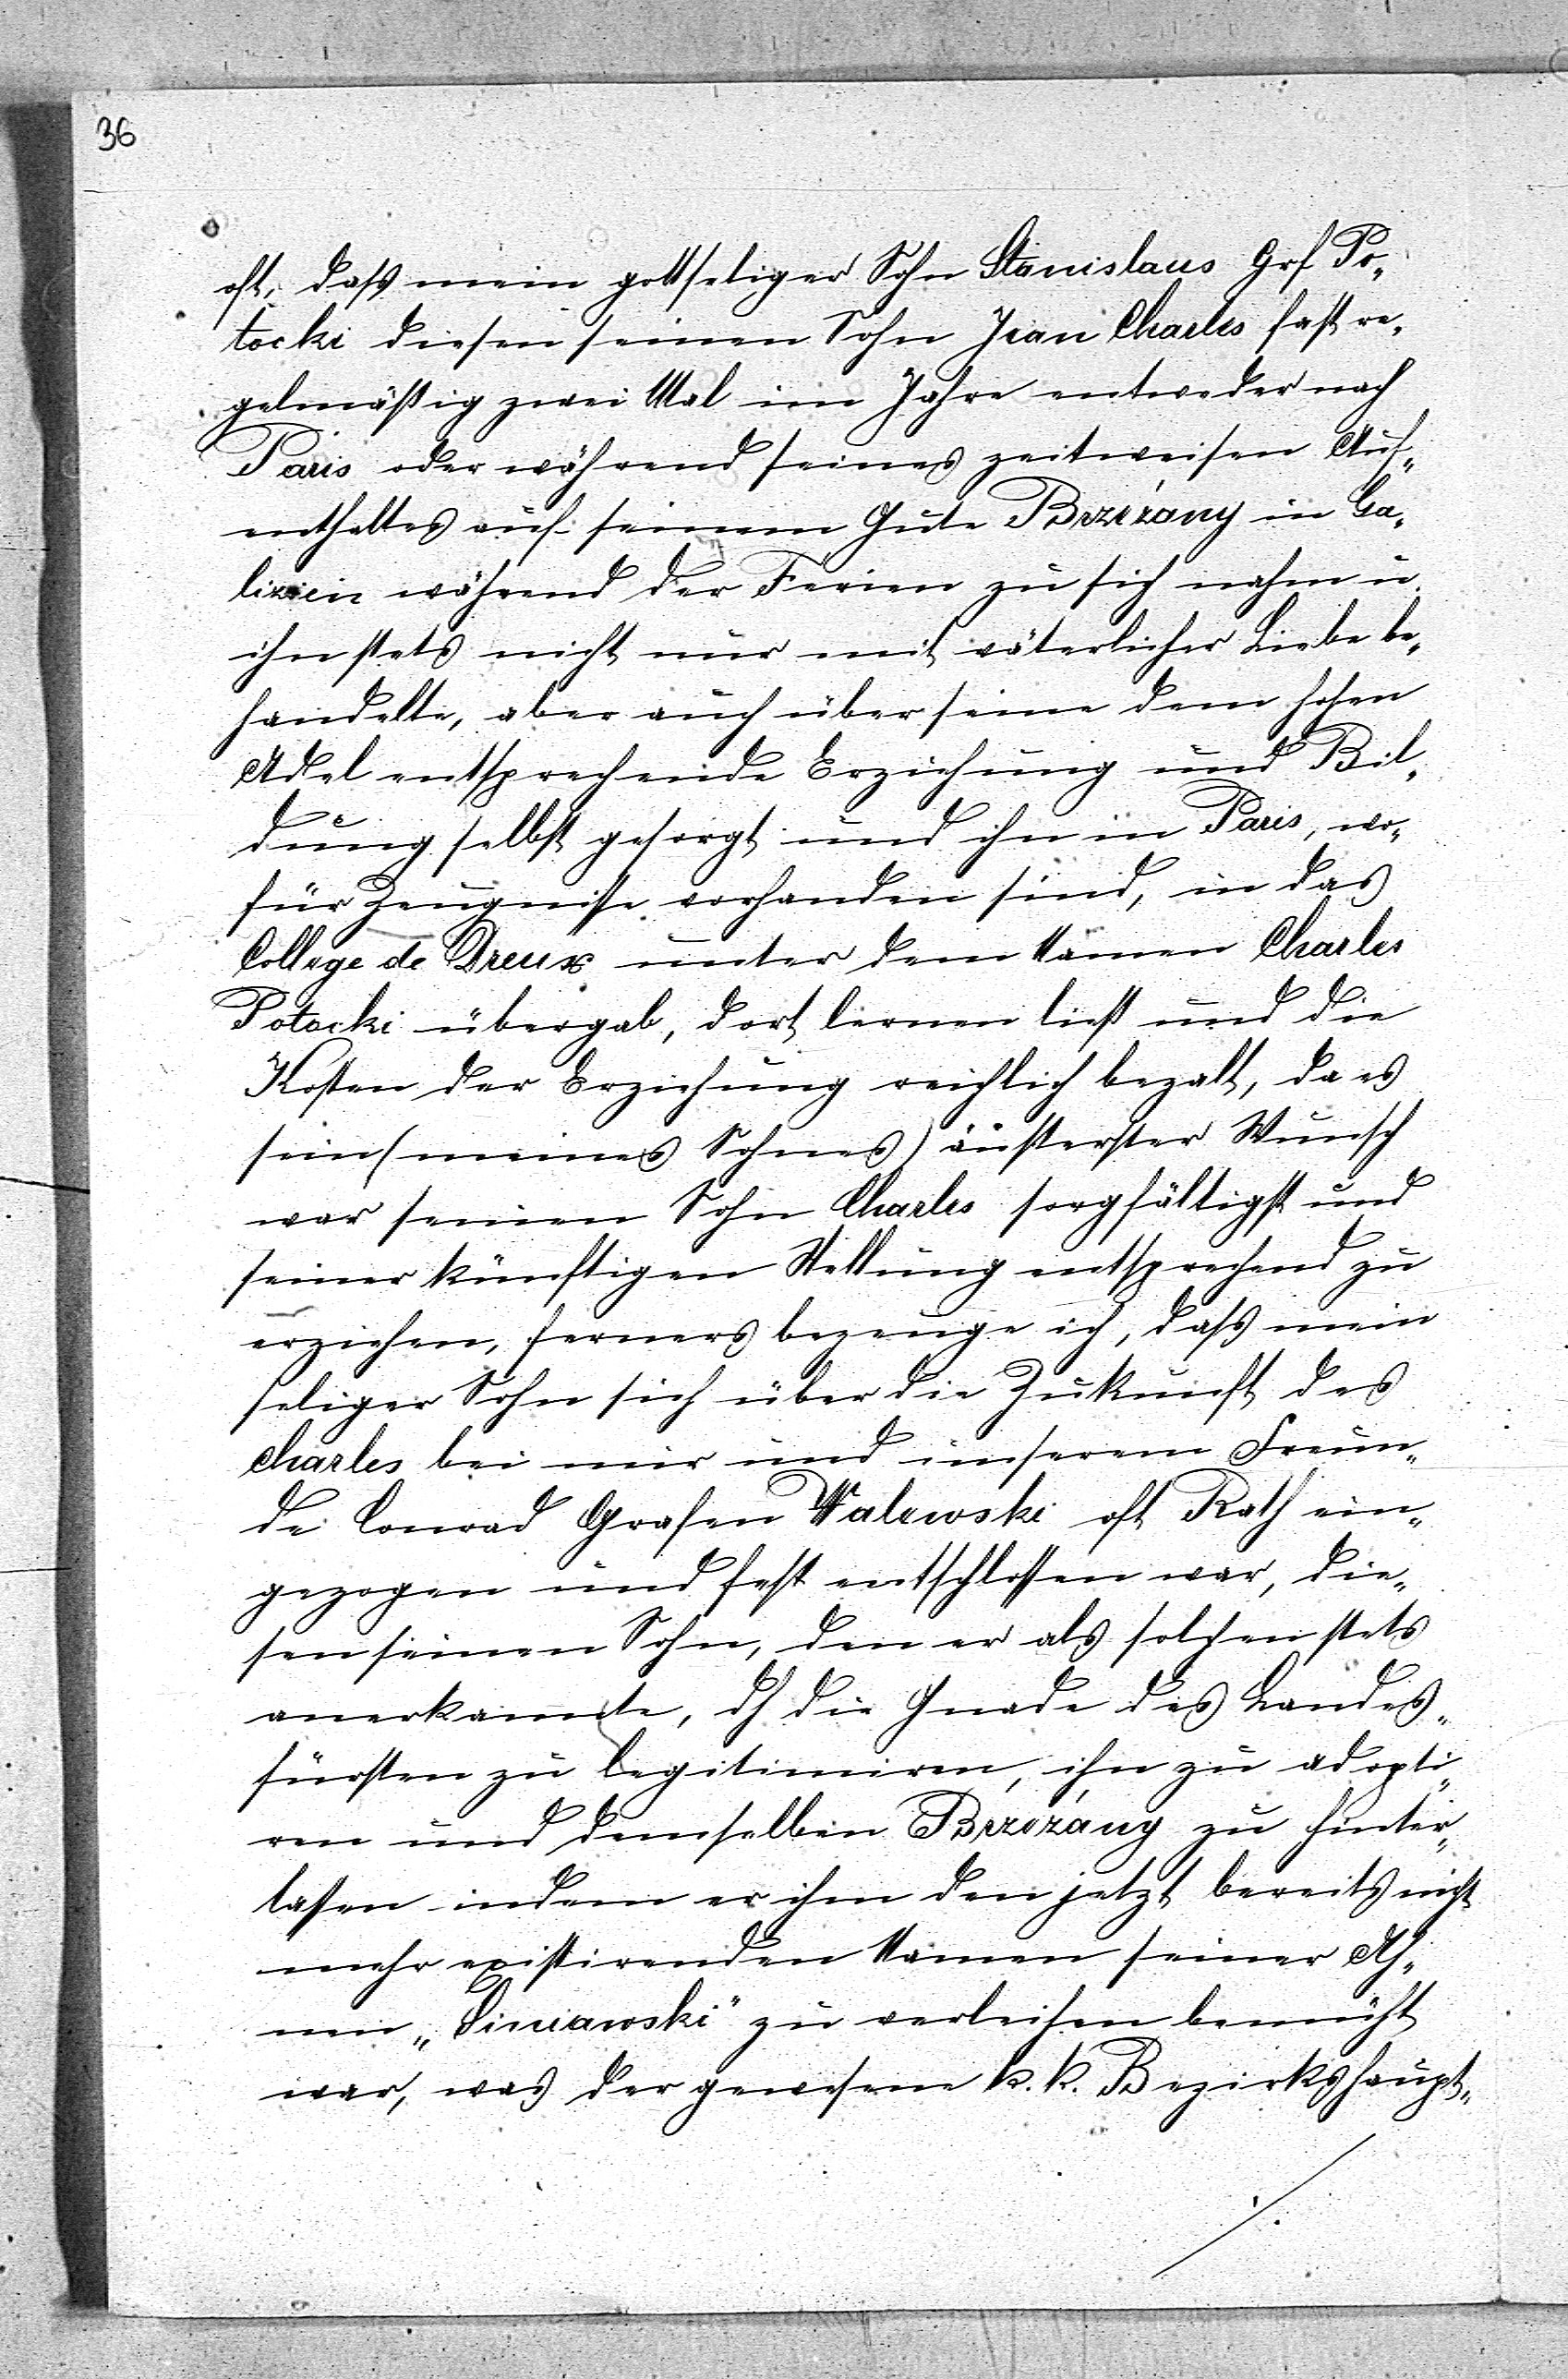 36
oft, daß mein gottseliger Sohn Stanislaus Grf Po„
tocki diesen seinen Sohn Jean Charles fast re„
gelmäßig zwei Mal im Jahre entweder nach
Paris oder während seines zeitweisen Auf„
enthaltes auf seinem Gute Brzeżany in Ga„
lizien während der Ferien zu sich nahm u.
ihn stets nicht nur mit väterlicher Liebe be„
handelte, aber auch über seine dem hohen
Adel entsprechende Erziehung und Bil„
dung selbst gesorgt und ihn in Paris, wo„
für Zeugnisse vorhanden sind, in das
College de Dreux unter dem Namen Charles
Potocki übergab, dort lernen ließ und die
Kosten der Erziehung reichlich bezalt, da es
sein (meines Sohnes) äußerster Wunsch
war seinen Sohn Charles sorgfältigst und
seiner künftigen Stellung entsprechend zu
erziehen, ferners bezeuge ich, daß mein
seliger Sohn sich über die Zukunft des
Charles bei mir und unserem Freun„
de Conrad Grafen Walewski oft Rath ein„
gezogen und fest entschlossen war, die„
sen seinen Sohn, den er als solchen stets
anerkannte, dh die Gnade des Landes„
fürsten zu legitimiren, ihn zu adopti„
ren und demselben Brzeżany zu hinter„
lassen indem er ihm den jetzt bereits nicht
mehr existirenden Namen seiner Ah„
nen „Siniawski" zu verleihen bemüht
war, was der gewesene k. k. Bezirkshaupt„
./.